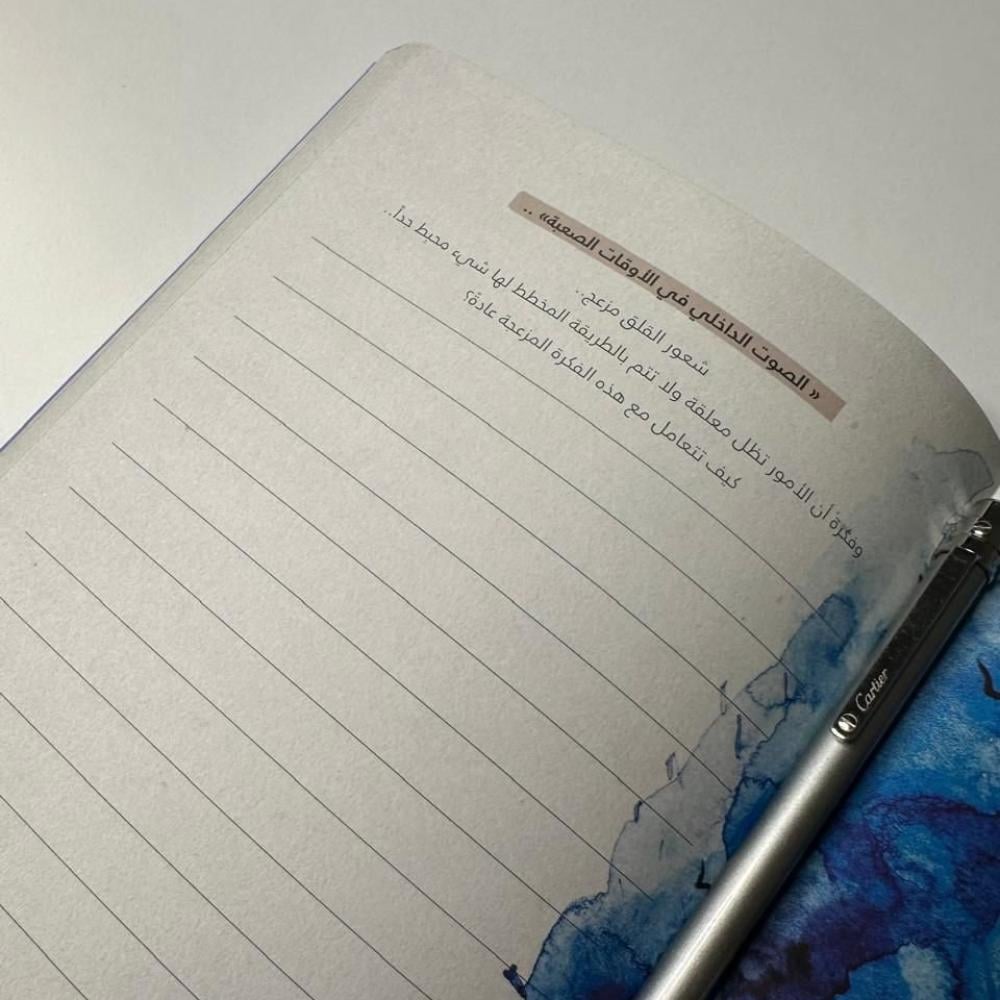 « الصوت الداخلي في الأوقات الصعبة» ..
شعور القلق مزعج..
وفكرة أن الأمور تظل معلقة ولا تتم بالطريقة المخطط لها شيء محبط جداً..
كيف تتعامل مع هذه الفكرة المزعجة عادةً؟
Cartier